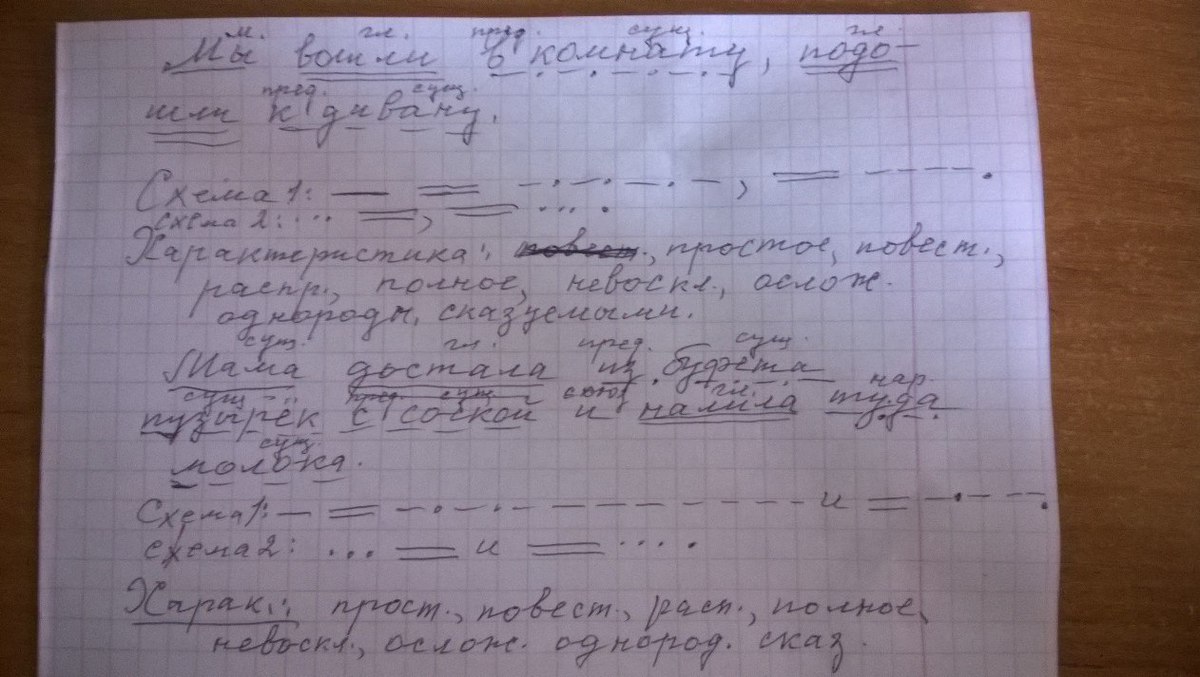 м. гл. пред. сущ. гл.
Мы вошли в комнату, подо-
пред. сущ.
шли к дивану.
Схема 1:
схема 2: ... , ... .
Характеристика: повест., простое, повест.,
распр., полное, невоскл., ослож.
однородн. сказуемыми.
сущ. гл. пред. сущ.
Мама достала из буфета
сущ. пред. сущ. союз гл. нар.
пузырёк с соской и налила туда
сущ.
молока.
Схема 1: и
схема 2: ... и ... .
Харак.: прост., повест., расп., полное,
невоскл., ослож. однород. сказ.